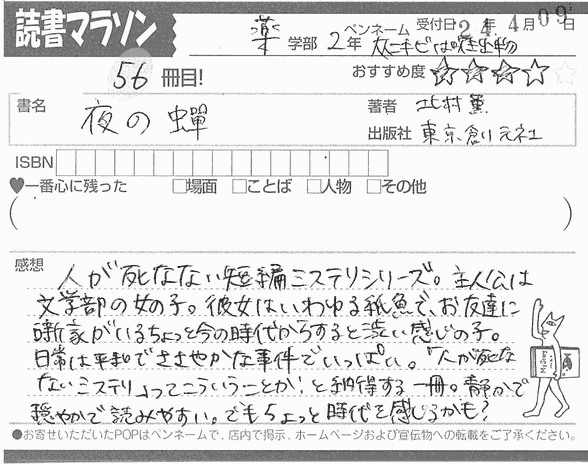 読書マラソン
薬 学部 2年 ペンネーム 受付日 24年 4月09日
56 冊目!
おすすめ度 ★★★★☆
書名 夜の蟬 著者 北村薫
出版社 東京創元社
ISBN
♥一番心に残った □場面 □ことば □人物 □その他
( )
感想 人が死なない短編ミステリシリーズ。主人公は
文学部の女の子。彼女はいわゆる紙魚で、お友達に
噺家がいるちょっと今の時代からすると渋い感じの子。
日常は平和でささやかな事件でいっぱい。「人が死な
ないミステリ」ってこういうことか!と納得する一冊。静かで
穏やかで読みやすい。でもちょっと時代を感じるかも?
●お寄せいただいたPOPはペンネームで、店内で掲示、ホームページおよび宣伝物への転載をご了承ください。